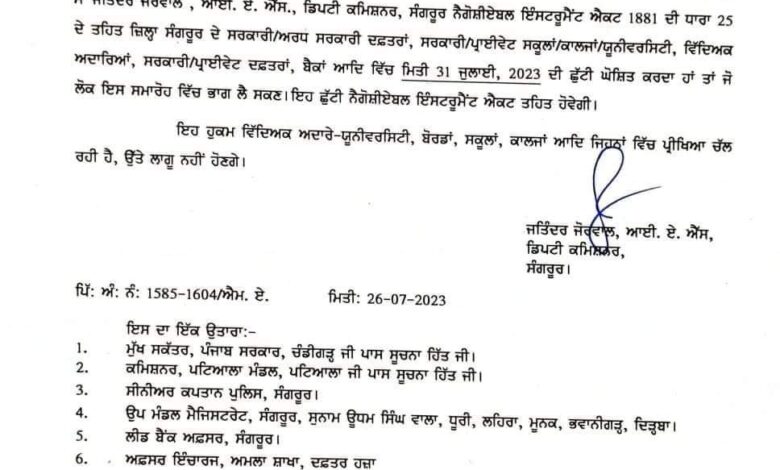 ਜਤਿੰਦਰ ਜੋਰਵਾਲ, ਆਈ. ਏ. ਐੱਸ., ਡਿਪਟੀ ਕਮਿਸ਼ਨਰ, ਸੰਗਰੂਰ ਨੈਗੋਸ਼ੀਏਬਲ ਇੰਸਟਰੂਮੈਂਟ ਐਕਟ 1881 ਦੀ ਧਾਰਾ 25
ਦੇ ਤਹਿਤ ਜ਼ਿਲ੍ਹਾ ਸੰਗਰੂਰ ਦੇ ਸਰਕਾਰੀ/ਅਰਧ ਸਰਕਾਰੀ ਦਫ਼ਤਰਾਂ, ਸਰਕਾਰੀ/ਪ੍ਰਾਈਵੇਟ ਸਕੂਲਾਂ/ਕਾਲਜਾਂ/ਯੂਨੀਵਰਸਿਟੀ, ਵਿੱਦਿਅਕ
ਅਦਾਰਿਆਂ, ਸਰਕਾਰੀ/ਪ੍ਰਾਈਵੇਟ ਦਫ਼ਤਰਾਂ, ਬੈਂਕਾਂ ਆਦਿ ਵਿੱਚ ਮਿਤੀ 31 ਜੁਲਾਈ, 2023 ਦੀ ਛੁੱਟੀ ਘੋਸ਼ਿਤ ਕਰਦਾ ਹਾਂ ਤਾਂ ਜੋ
ਲੋਕ ਇਸ ਸਮਾਰੋਹ ਵਿੱਚ ਭਾਗ ਲੈ ਸਕਣ। ਇਹ ਛੁੱਟੀ ਨੈਗੋਸ਼ੀਏਬਲ ਇੰਸਟਰੂਮੈਂਟ ਐਕਟ ਤਹਿਤ ਹੋਵੇਗੀ।
ਇਹ ਹੁਕਮ ਵਿੱਦਿਅਕ ਅਦਾਰੇ-ਯੂਨੀਵਰਸਿਟੀ, ਬੋਰਡਾਂ, ਸਕੂਲਾਂ, ਕਾਲਜਾਂ ਆਦਿ ਜਿਹਨਾਂ ਵਿੱਚ ਪ੍ਰੀਖਿਆ ਚੱਲ
ਰਹੀ ਹੈ, ਉੱਤੇ ਲਾਗੂ ਨਹੀਂ ਹੋਣਗੇ।
ਜਤਿੰਦਰ ਜੋਰਵਾਲ, ਆਈ. ਏ. ਐੱਸ,
ਡਿਪਟੀ ਕਮਿਸ਼ਨਰ,
ਸੰਗਰੂਰ।
ਪਿੱ: ਅੰ: ਨੰ: 1585-1604/ਐਮ. ਏ. ਮਿਤੀ: 26-07-2023
ਇਸ ਦਾ ਇੱਕ ਉਤਾਰਾ:-
1. ਮੁੱਖ ਸਕੱਤਰ, ਪੰਜਾਬ ਸਰਕਾਰ, ਚੰਡੀਗੜ੍ਹ ਜੀ ਪਾਸ ਸੂਚਨਾ ਹਿੱਤ ਜੀ।
2. ਕਮਿਸ਼ਨਰ, ਪਟਿਆਲਾ ਮੰਡਲ, ਪਟਿਆਲਾ ਜੀ ਪਾਸ ਸੂਚਨਾ ਹਿੱਤ ਜੀ।
3. ਸੀਨੀਅਰ ਕਪਤਾਨ ਪੁਲਿਸ, ਸੰਗਰੂਰ।
4. ਉਪ ਮੰਡਲ ਮੈਜਿਸਟਰੇਟ, ਸੰਗਰੂਰ, ਸੁਨਾਮ ਊਧਮ ਸਿੰਘ ਵਾਲਾ, ਧੂਰੀ, ਲਹਿਰਾ, ਮੂਨਕ, ਭਵਾਨੀਗੜ੍ਹ, ਦਿੜ੍ਹਬਾ।
5. ਲੀਡ ਬੈਂਕ ਅਫ਼ਸਰ, ਸੰਗਰੂਰ।
6. ਅਫ਼ਸਰ ਇੰਚਾਰਜ, ਅਮਲਾ ਸ਼ਾਖਾ, ਦਫ਼ਤਰ ਹਜ਼ਾ